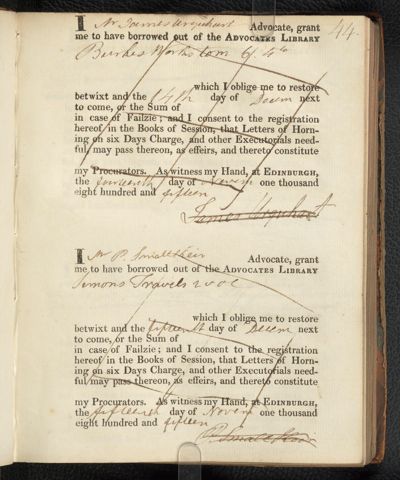 44.
I Mr James Urquhart Advocate, grant
me to have borrowed out of the ADVOCATES LIBRARY
Burkes Works tom 6. 4to
which I oblige me to restore
betwixt and the 14th day of Decem next
to come, or the Sum of
in case of Failzie; and I consent to the registration
hereof in the Books of Session, that Letters of Horn-
ing on six Days Charge, and other Executorials need-
ful may pass thereon, as effeirs, and thereto constitute
my Procurators. As witness my Hand, at EDINBURGH,
the fourteenth day of Novem one thousand
eight hundred and fifteen
James Urquhart
I Mr P. Small Keir Advocate, grant
me to have borrowed out of the ADVOCATES LIBRARY
Simons Travels 2 vol
which I oblige me to restore
betwixt and the fifteenth day of Decem next
to come, or the Sum of
in case of Failzie; and I consent to the registration
hereof in the Books of Session, that Letters of Horn-
ing on six Days Charge, and other Executorials need-
ful may pass thereon, as effeirs, and thereto constitute
my Procurators. As witness my Hand, at EDINBURGH,
the fifteenth day of Novem one thousand
eight hundred and fifteen
P. Small Keir